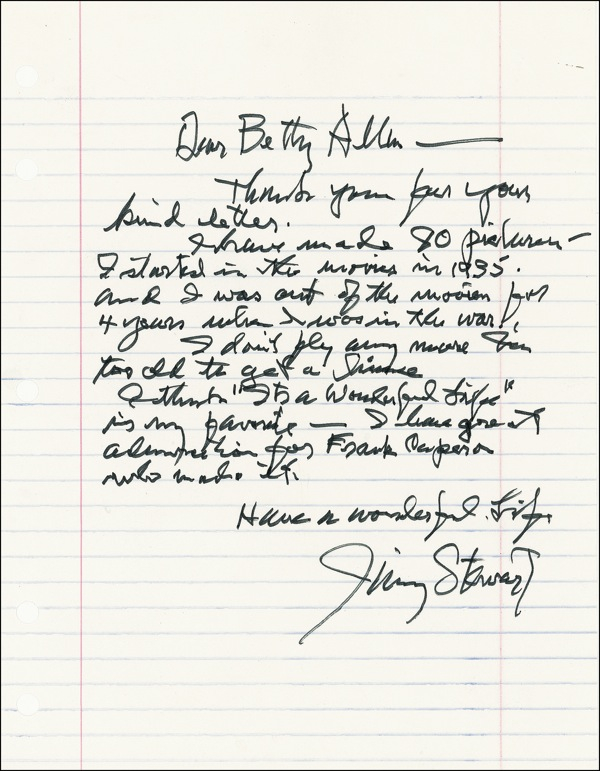 Dear Betty Allen —
Thank you for your
kind letter.
I have made 80 pictures —
I started in the movies in 1935.
and I was out of the movies for
4 years when I was in the war.
I don't fly any more I'm
too old to get a license
I think "It's a Wonderful Life"
is my favorite — I have great
admiration for Frank Capra
who made it.
Have a wonderful Life
Jimmy Stewart